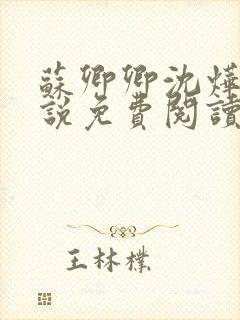 蘇卿卿沈燁
說免費閱讀
王林樸